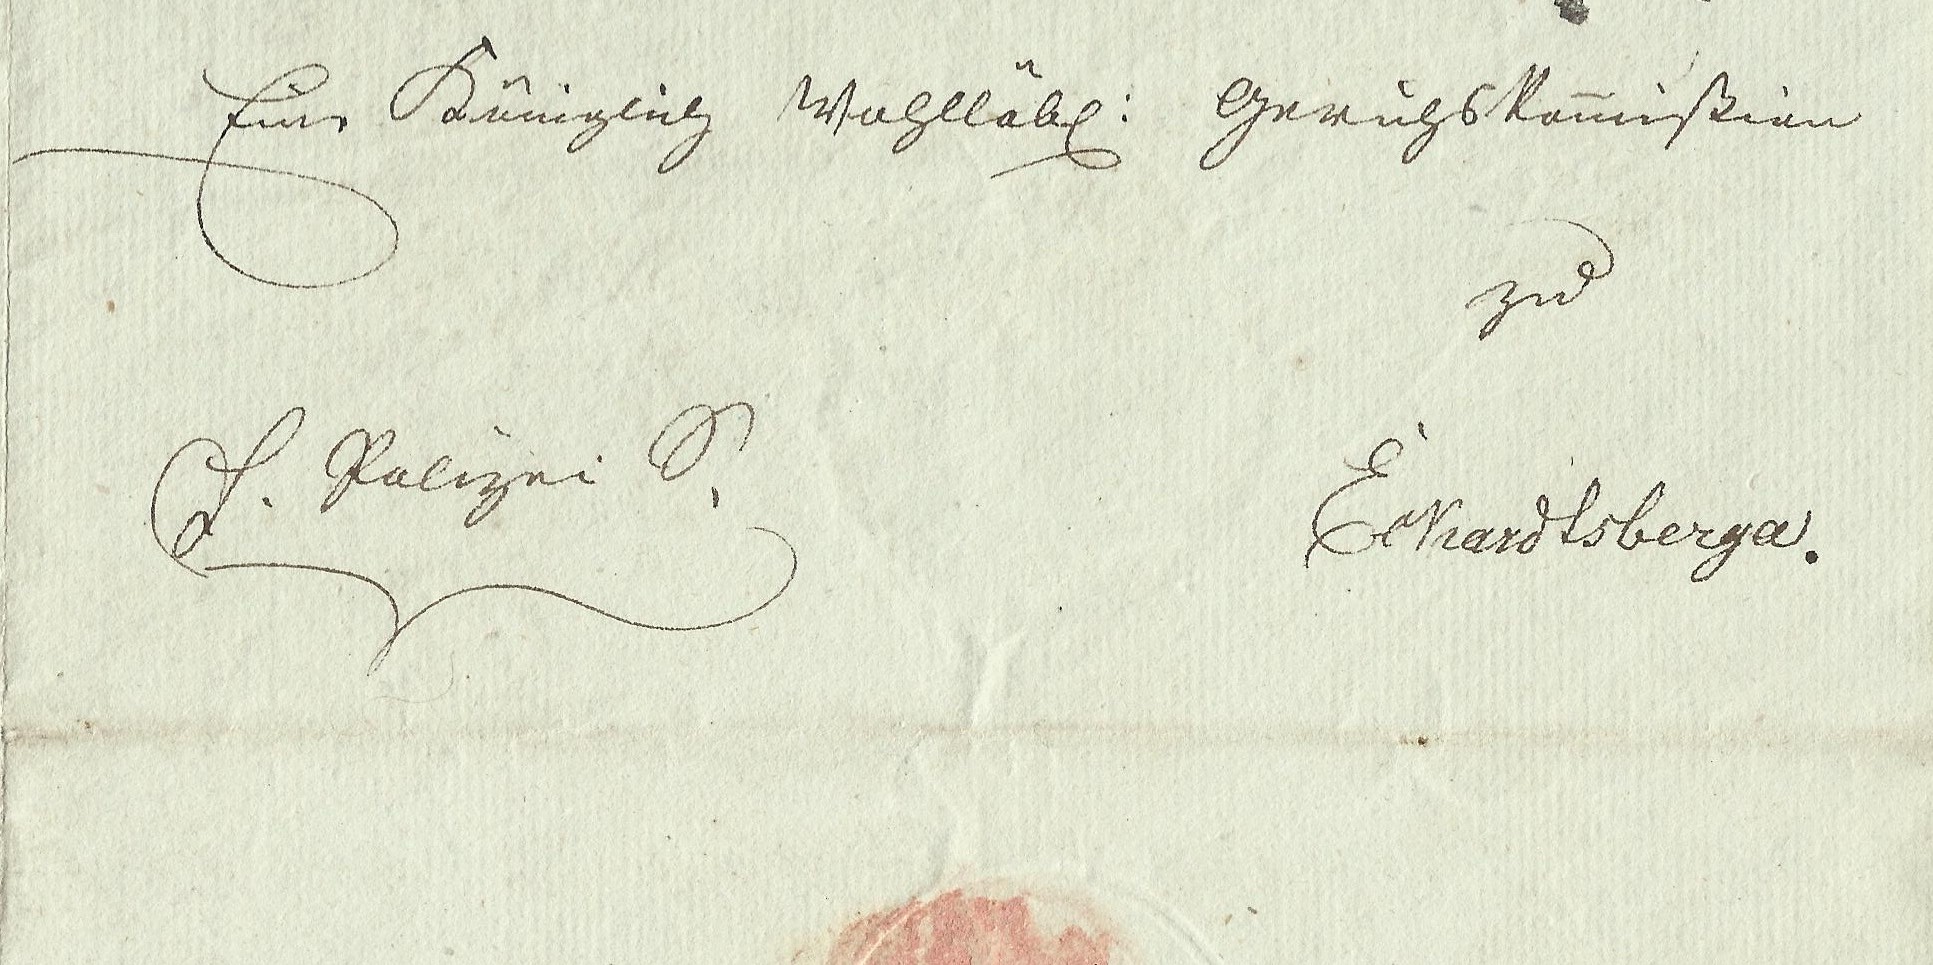 Eine Königlich Wohllöbl: Gerichtskom̄ißion
zu
Eckardtsberga.
S. Polizei S.